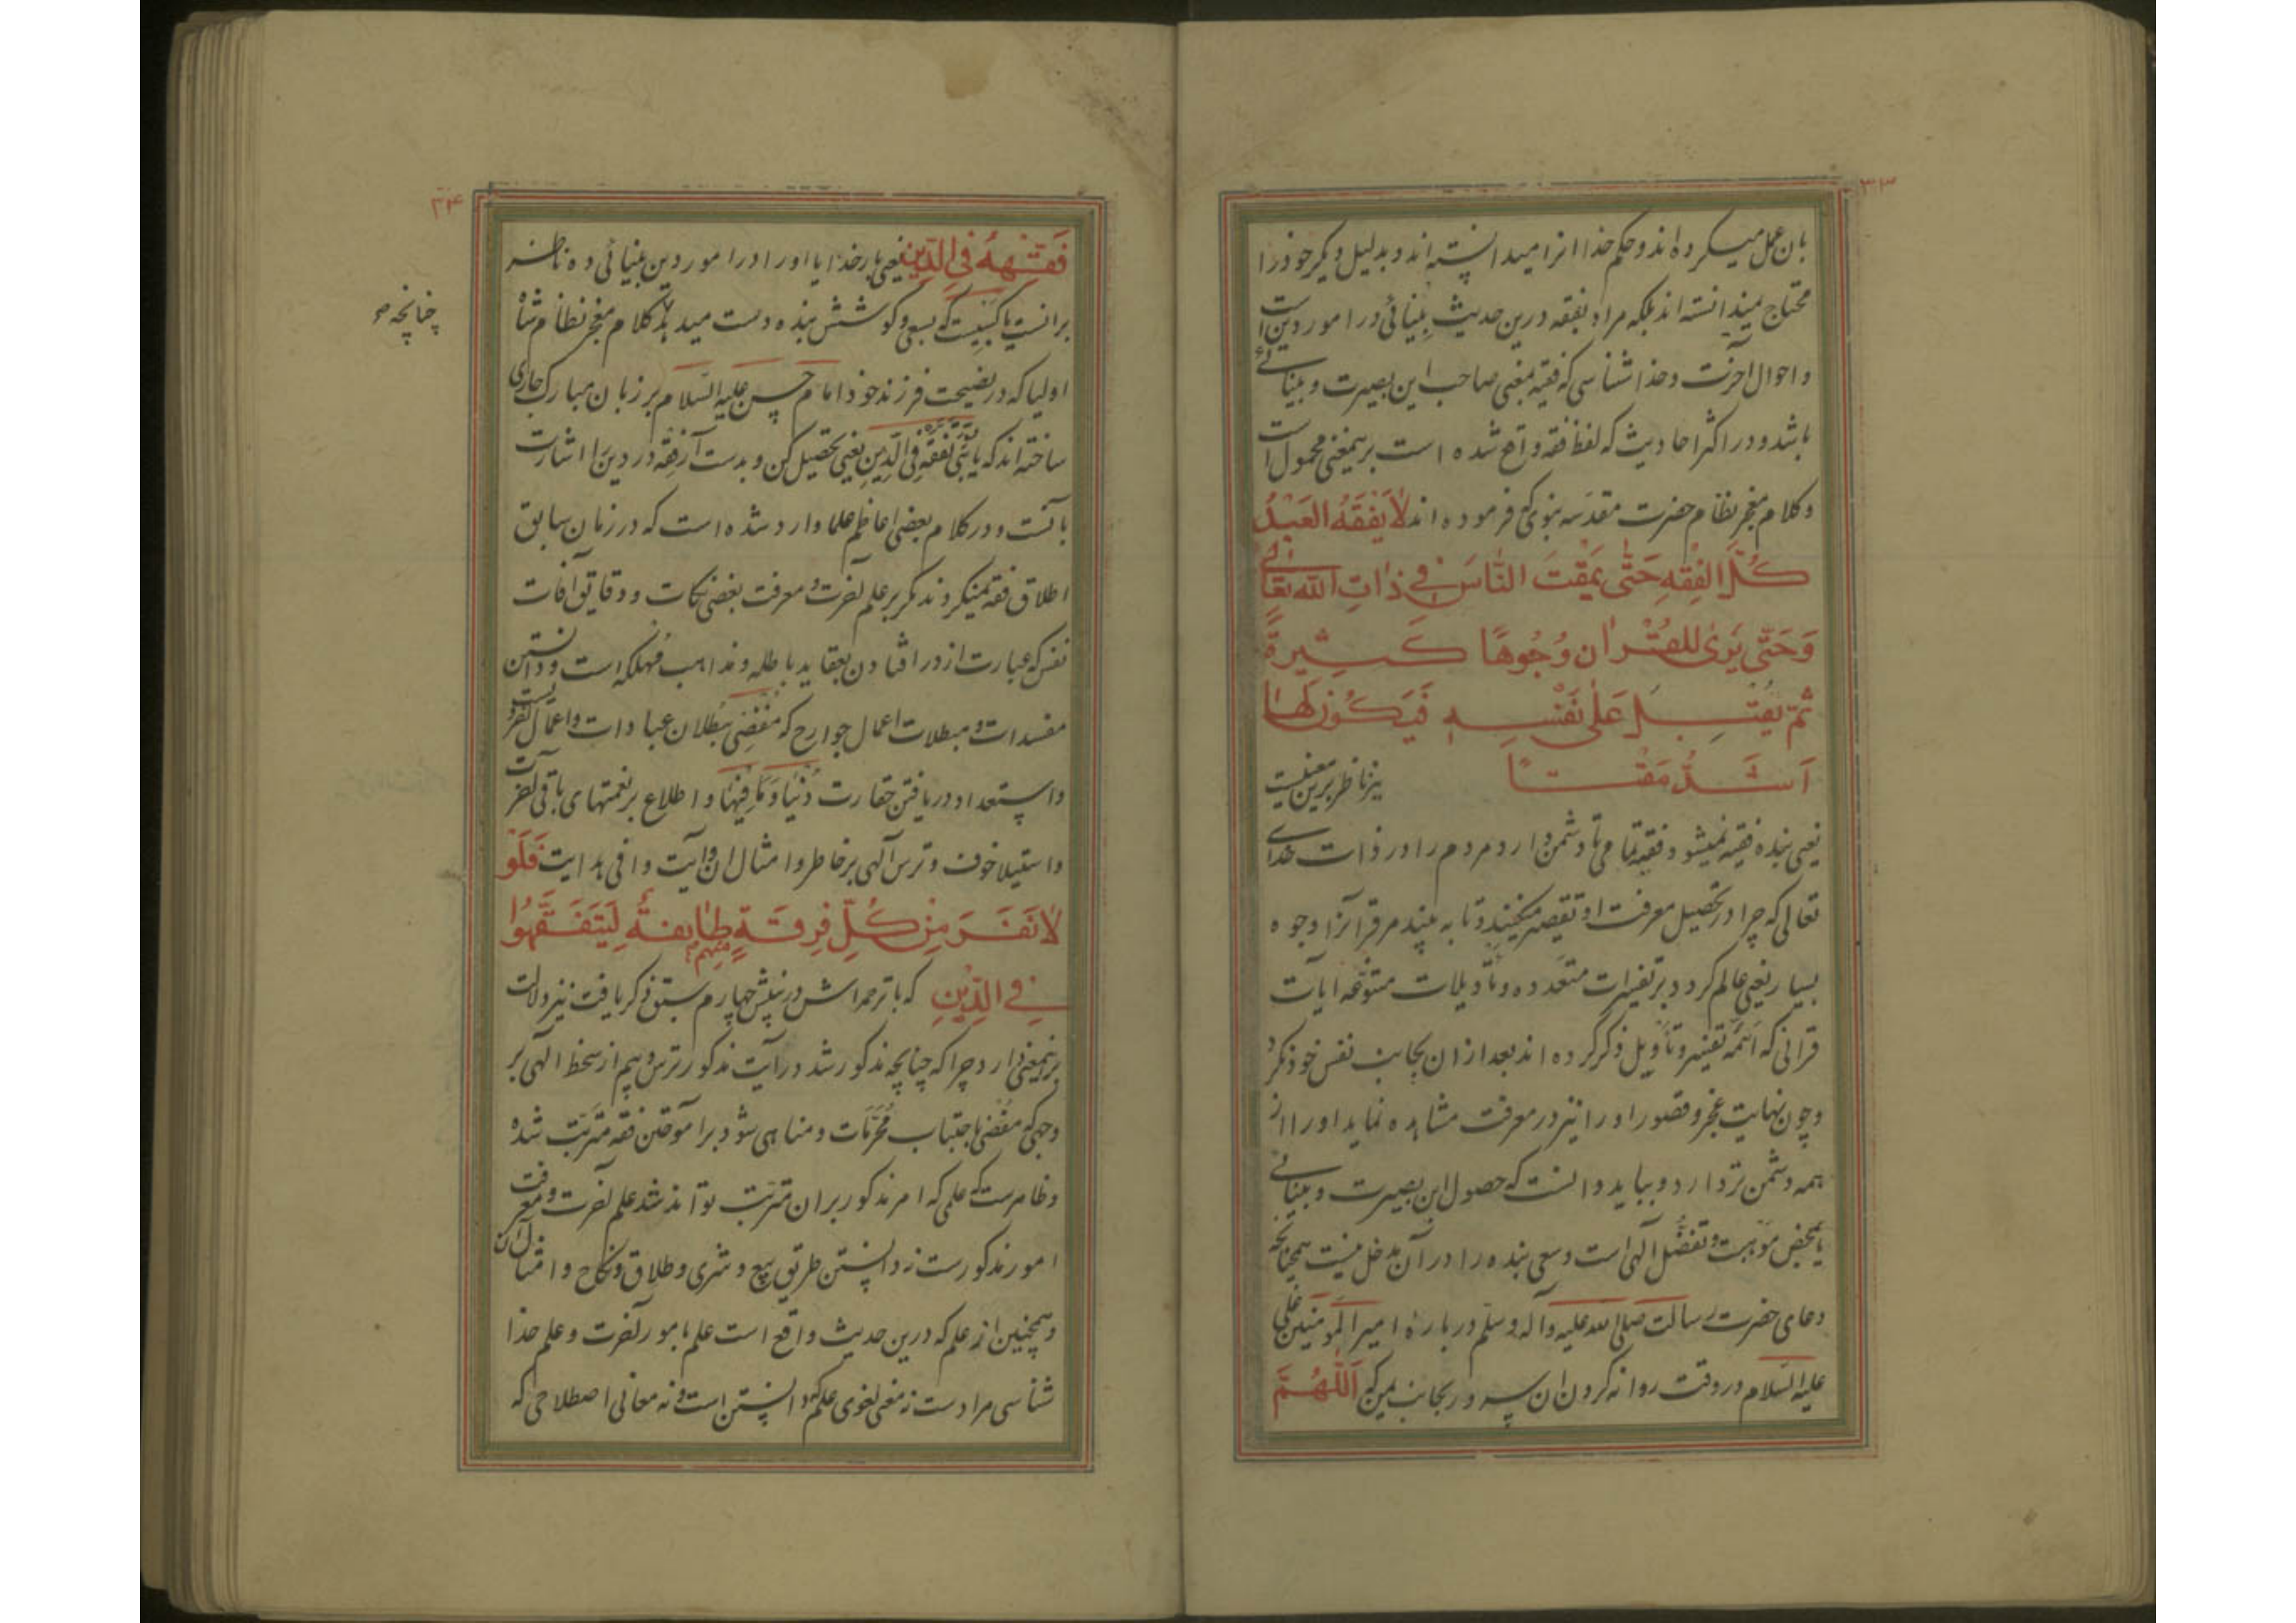 ۳۳
بان عمل میکرده اند و حکم خدا انرا میدانسته اند و بدلیل دیگر خود را
محتاج نمیدانسته اند بلکه مراد بفقه درین حدیث بینائی در امور دین است
و احوال آخرت و خدا شناسی که فقیه بمعنی صاحب این بصیرت و بینائی
باشد و در اکثر احادیث که لفظ فقه واقع شده است برینمعنی محمول است
و کلام معجز نظام حضرت مقدسه نبوی که فرموده اند لَا يَفْقَهُ الْعَبْدُ
كُلَّ الفِقْهِ حَتّٰى يَمْقُتَ النَّاسَ فِي ذٰاتِ اللّٰه تعالی
وَحَتّٰى يَرٰى لِلقُرْاٰن وُجُوهًا كَثِيرَةً
ثُمَّ يُقْبِلَ عَلٰى نَفْسِهِ فَيَكُونَ لَهٰا
اَشَدُّ مَقْتًا نیز ناظر برین معنیست
یعنی بنده فقیه نمیشود فقیه تمامی تا دشمن دارد مردم را در ذات خدای
تعالی که چرا در تحصیل معرفت او تقصیر میکنند و تا به بیند مر قرآنرا وجوه
بسیار یعنی عالم گردد بر تفسیرات متعدده و تأویلات متنوّعه ایات
قرانی که ائمّه تفسیر و تأویل ذکر کرده اند بعد ازان بجانب نفس خود نگرد
و چون نهایت عجز و قصور او را نیز در معرفت مشاهده نماید او را از
همه دشمن تر دارد و بباید دانست که حصول این بصیرت و بینائی
یا بمحض موهبت و تفضّل آلهی است و سعی بنده را در آن مدخل نیست همچنانکه
دعای حضرت رسالت صلی الله علیه وآله وسلّم درباره امیر المومنین علی
علیه السّلام در وقت روانه کردن ان سرور بجانب یمن که اَللّٰهُمَّ
۳۴
فَقِّهْهُ فِي الدِّينِ یعنی بار خدایا او را در امور دین بینائی ده ناظر
برانست یا کسبیست که بسعی و کوشش بنده دست میدهد کلام معجز نظام شاه
چنانچه
اولیا که در نصیحت فرزند خود امام حسن علیه السّلام بر زبان مبارک جاری
ساخته اند که یا بُنَيَّ تَفَقَّه فِي الدِّينِ یعنی تحصیل کن و بدست آر فقه در دین را اشارت
بآنست و در کلام بعضی اعاظم علما وارد شده است که در زمان سابق
اطلاق فقه نمیکردند مگر بر علم آخرت و معرفت بعضی نکات و دقایق آفات
نفس که عبارت از در افتادن بعقاید باطله و مذاهب مُهلکه است و دانستن
مفسدات و مبطلات اعمال جوارح که مُفْضِی ببُطلان عبادات و اعمال
و استعداد دریافتن حقارت دُنْیٰا وَمٰا فِیهٰا و اطلاع بر نعمتهای باقی آخرت
و استیلا خوف و ترس آلهی بر خاطر و امثال ان و آیت وافی هدایت فَلَوْ
لٰا نَفَرَ مِنْ كُلِّ فِرقَةٍ مِنْهُم طٰايِفَةٌ لِيَتَفَقَّهُوا
فِي الدِّينِ که با ترجمه اش در پیش چهارم سبق ذکر یافت نیز دلالت
برینمعنی دارد چرا که چنانچه مذکور شد در آیت مذکور ترس و بیم از سخط الهی بر
وجهی که مُفْضی باجتناب مُحَرَّمات و مناهی شود بر آموختن فقه مترتّب شده
و ظاهرست که علمی که امر مذکور بران مترتّب تواند شد علم آخرت و معرفت
امور مذکورست نه دانستن طریق بیع و شری و طلاق و نکاح و امثال آن
و همچنین از علم که درین حدیث واقع است علم بامور آخرت و علم خدا
شناسی مرادست نه معنی لغوی علم که دانستن است و نه معانی اصطلاحی که